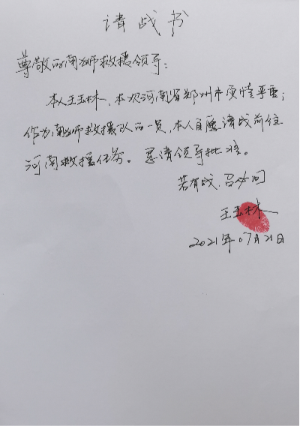 请战书
尊敬的南师救援领导：
本人王玉林，本次河南省郑州市灾情严重；
作为南师救援队的一员，本人自愿请战前往
河南救援任务。恳请领导批准。
若有战，召必回
王玉林
2021年07月21日